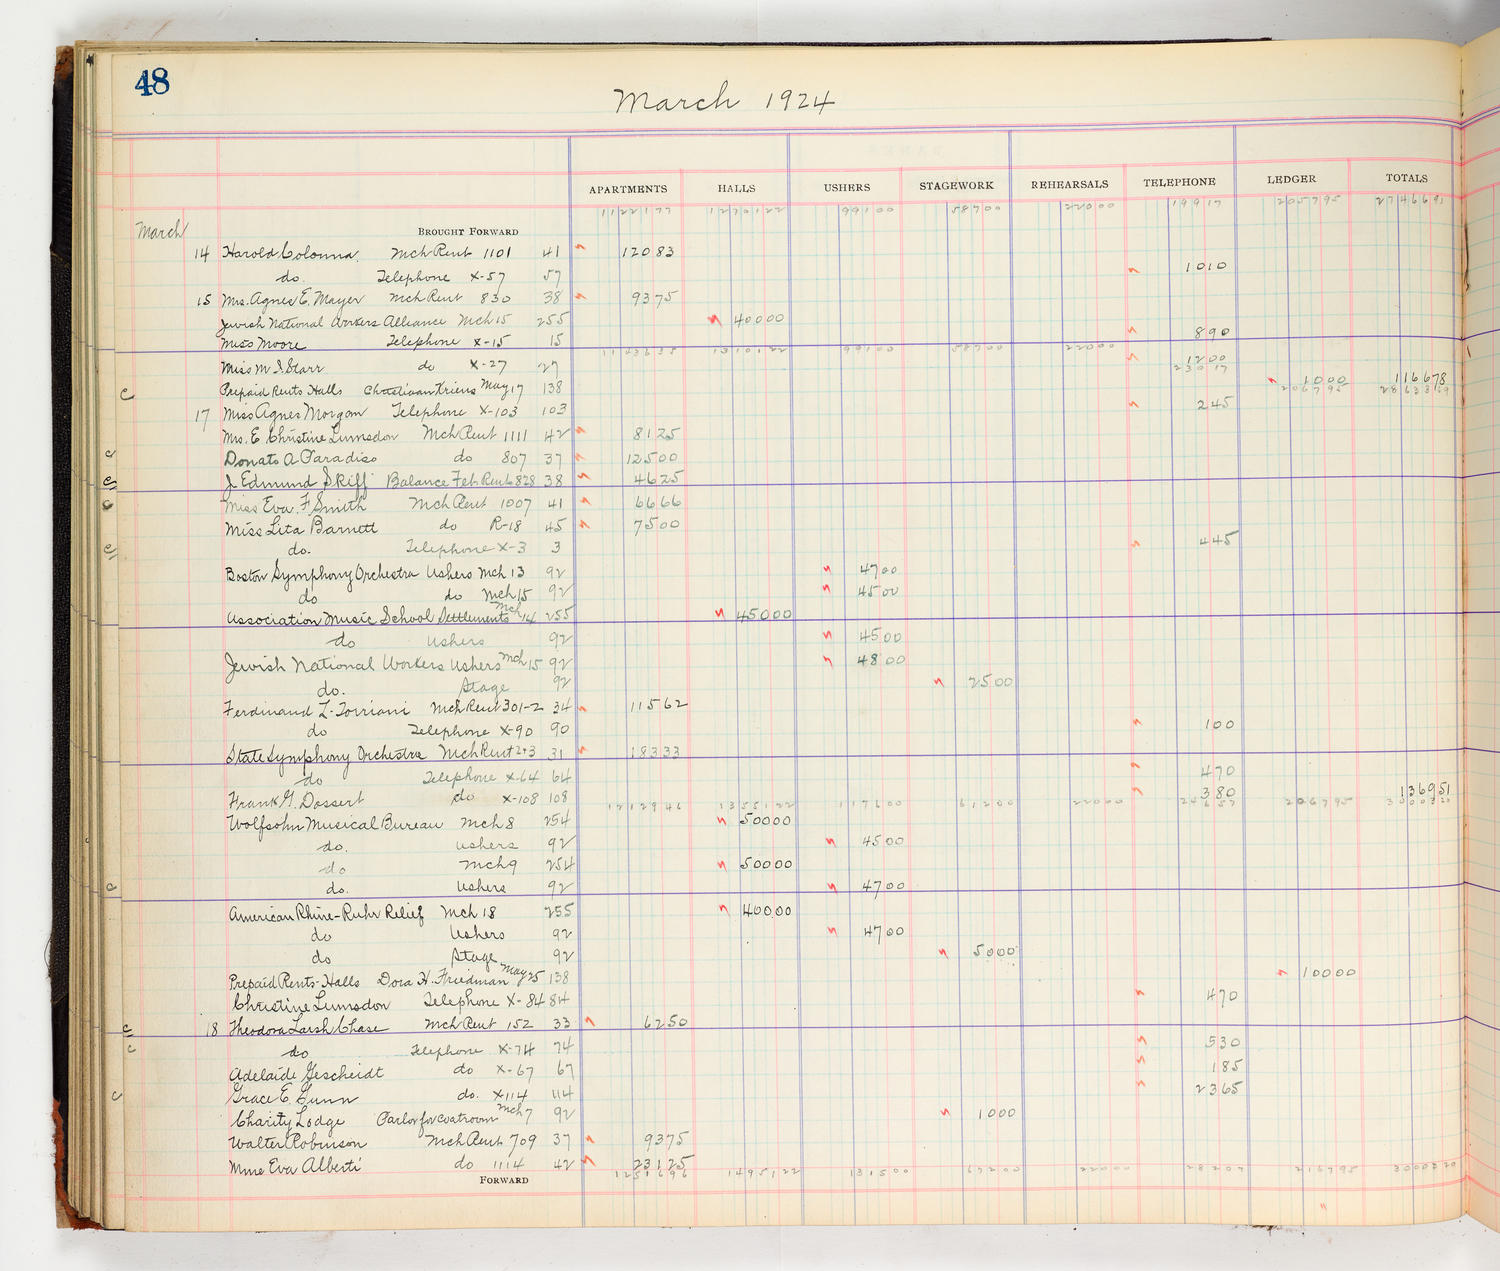 48
March 1924
APARTMENTS HALLS USHERS STAGEWORK REHEARSALS TELEPHONE LEDGER TOTALS
1122177 1270122 99100 58700 22000 19917 205795 2746691
March BROUGHT FORWARD
14 Harold Colonna. Mch Rent 1101 41 12083
do. Telephone X-57 57 1010
15 Mrs. Agnes E. Mayer Mch Rent 830 38 9375
Jewish National Workers Alliance Mch 15 255 40000
Miss Moore Telephone X-15 15 890
1143635 1310122 99100 58700 22000
Miss M I Starr do X-27 27 1200
23017
Prepaid Rents Halls Christiaan Kriens May 17 138 1000 116678
206795 2863369
17 Miss Agnes Morgan Telephone X-103 103 245
Mrs. E. Christine Lumsdon Mch Rent 1111 42 8125
c Donato A Paradiso do 807 37 12500
c J. Edmund Skiff Balance Feb Rent 828 38 4625
c Miss Eva. F. Smith Mch Rent 1007 41 6666
Miss Lita Barnett do R-18 45 7500
c do. Telephone X-3 3 445
Boston Symphony Orchestra Ushers Mch 13 92 4700
do do Mch 15 92 4500
Association Music School Settlements Mch 14 255 45000
do Ushers 92 4500
Jewish National Workers Ushers Mch 15 92 4800
do. Stage 92 2500
Ferdinand L. Torriani Mch Rent 301-2 34 11562
do Telephone X-90 90 100
State Symphony Orchestra Mch Rent 2+3 31 18333
do Telephone X-64 64 470
Frank G. Dossert do X-108 108 380 136951
1212946 1355122 117600 61200 22000 24657 206795
Wolfsohn Musical Bureau Mch 8 254 50000
do. Ushers 92 4500
do Mch 9 254 50000
c do. Ushers 92 4700
American Rhine-Ruhr Relief Mch 18 255 40000
do Ushers 92 4700
do Stage 92 5000
Prepaid Rents-Halls Dora H. Friedman May 25 138 10000
Christine Lumsdon Telephone X-84 84 470
c 18 Theodora Larsh Chase Mch Rent 152 33 6250
c do Telephone X-74 74 530
Adelaide Gescheidt do X-67 67 185
c Grace E. Gunn do. X114 114 2365
Charity Lodge Parlor for coatroom Mch 7 92 1000
Walter Robinson Mch Rent 709 37 9375
Mme Eva Alberti do 1114 42 23125
FORWARD 1251696 1495122 131500 67200 22000 28207 216795